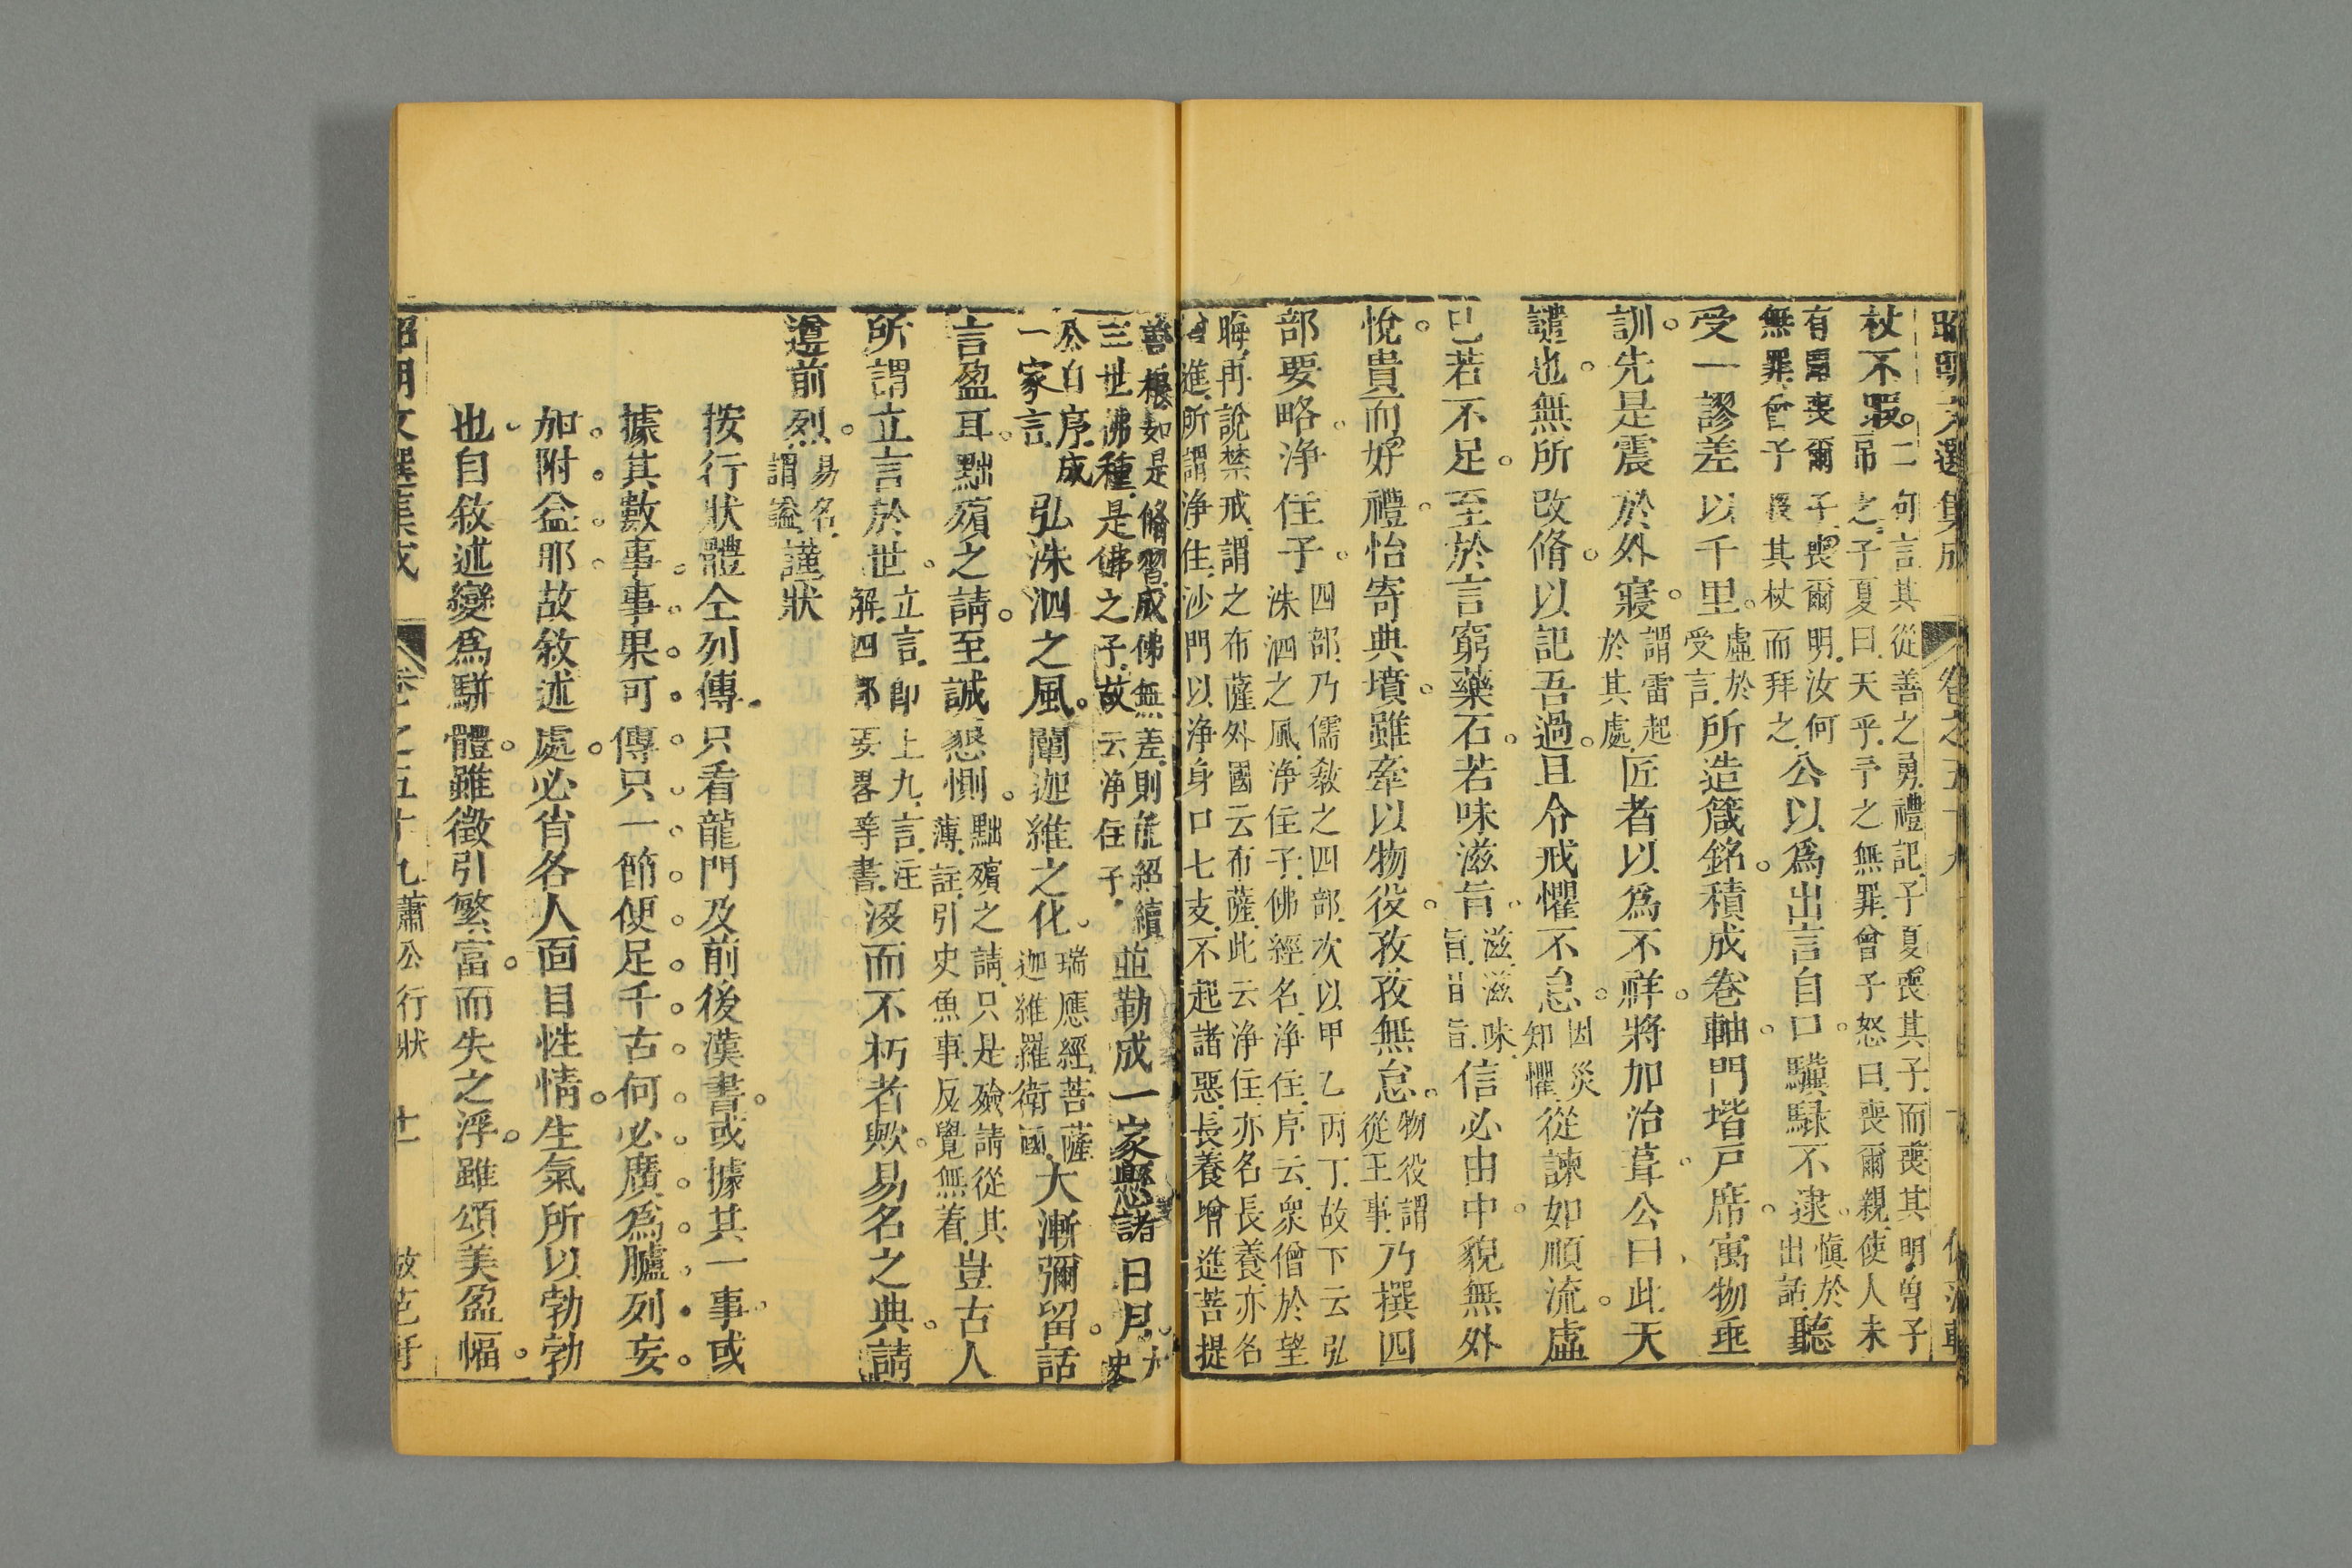 昭明文選集成 卷之五十九
杖不暇弔二句言其從善之勇禮記子夏喪其子而喪其明曾子弔之子夏曰天乎予之無罪曾子怒曰喪爾親使人未
有聞喪爾子喪爾明汝何無罪曾子投其杖而拜之公以爲出言自口驥騄不逮愼於出話聽
受一謬差以千里虛於受言所造箴銘積成卷軸門堦戸席寓物垂
訓先是震於外寢謂雷起於其處匠者以爲不祥將加治葺公曰此天
譴也無所改脩以記吾過且令戒懼不怠因災知懼從諫如順流虛
已若不足至於言窮藥石若味滋旨滋滋味旨甘旨信必由中貌無外
悅貴而好禮怡寄典墳雖牽以物役孜孜無怠物役謂從王事乃撰四
部要略浄住子四部乃儒敎之四部次以甲乙丙丁故下云弘洙泗之風浄住子佛經名浄住序云衆僧於望
晦再說禁戒謂之布薩外國云布薩此云浄住亦名長養亦名增進所謂浄住沙門以浄身口七支不起諸惡長養增進菩提
善根如是脩習成佛無差則能紹續三世佛種是佛之子故云浄住子並勒成一家懸諸日月
公自序成一家言弘洙泗之風闡迦維之化瑞應經菩薩迦維羅衛國大漸彌留話
言盈耳黜殯之請至誠懇惻黜殯之請只是殮請從其薄註引史魚事反覺無着豈古人
所謂立言於世立言卽上九言注解四部要畧等書沒而不朽者歟易名之典請
遵前烈易名謂諡謹狀
按行狀體仝列傳只看龍門及前後漢書或據其一事或
據其數事事果可傳只一節便足千古何必廣爲臚列妄
加附益耶故敘述處必肖各人面目性情生氣所以勃勃
也自敘述變爲駢體雖徵引繁富而失之浮雖頌美盈幅
昭明文選集成 卷之五十九蕭公行狀 十一